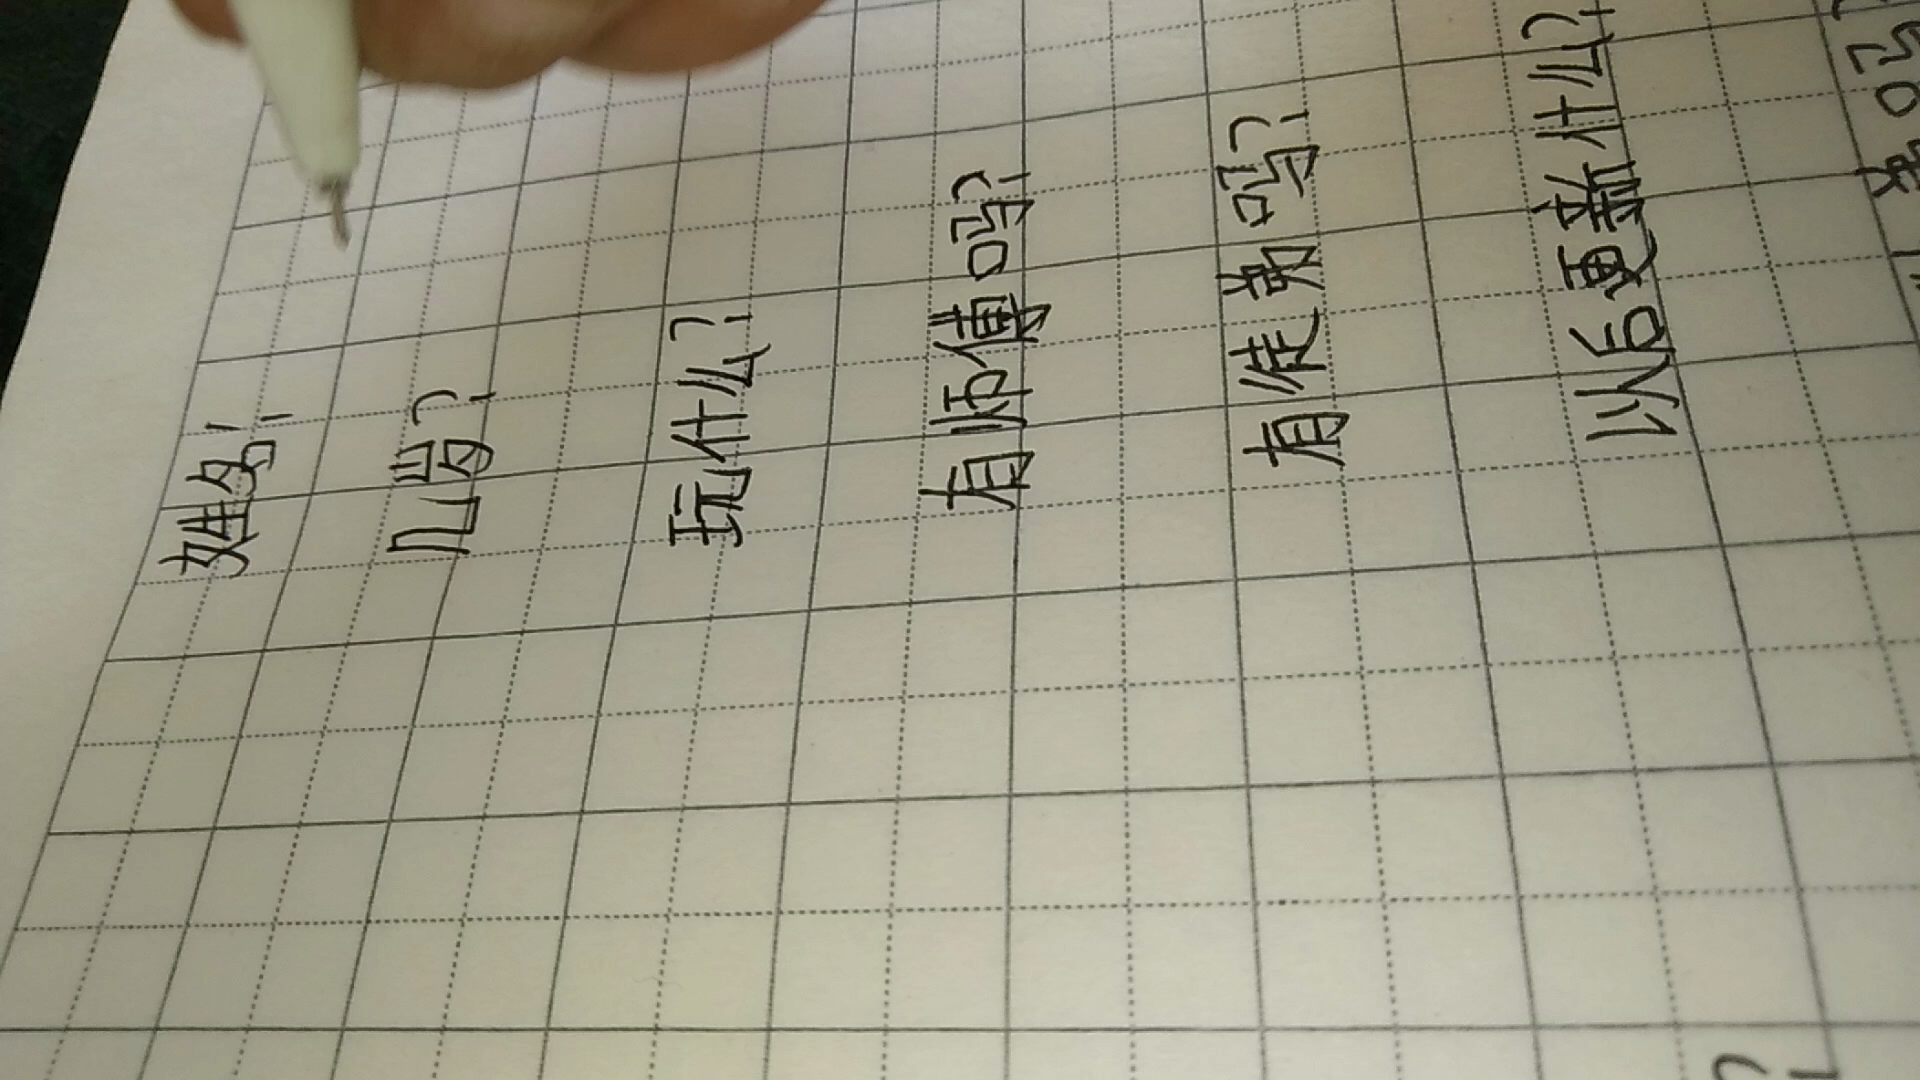 姓名!
几岁?
玩什么?
有师傅吗?
有徒弟吗?
以后更新什么?